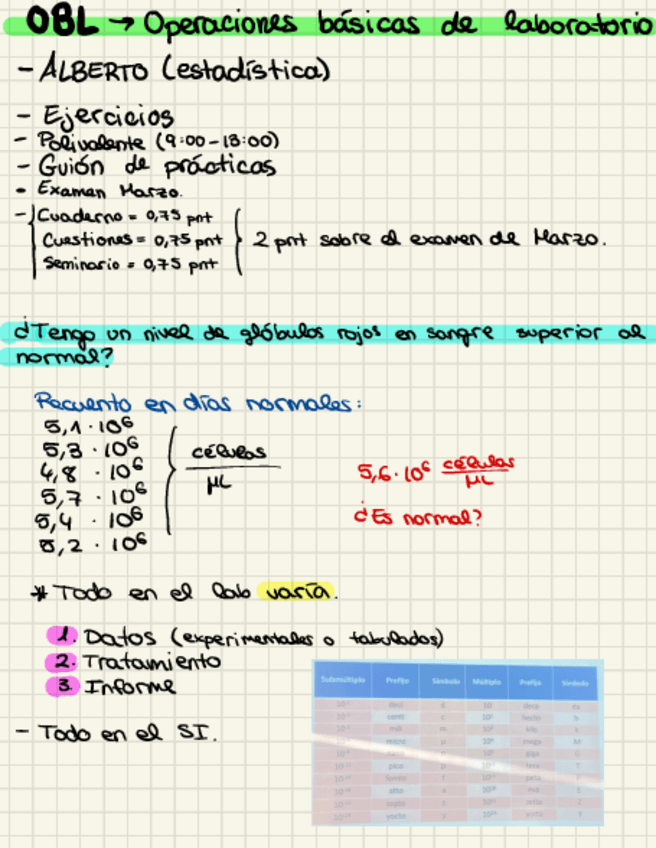 OBL → Operaciones básicas de laboratorio
- ALBERTO (estadística)
- Ejercicios
- Polivalente (9:00-13:00)
- Guión de prácticas
- Examen Marzo.
- Cuaderno = 0,75 pnt
Cuestiones = 0,75 pnt
Seminario = 0,75 pnt
2 pnt sobre el examen de Marzo.
¿Tengo un nivel de glóbulos rojos en sangre superior al
normal?
Recuento en días normales:
5,1 · 10⁶
5,3 · 10⁶
4,8 · 10⁶
5,7 · 10⁶
5,4 · 10⁶
5,2 · 10⁶
células
µL
5,6 · 10⁶ células
µL
¿Es normal?
* Todo en el lab varía.
1. Datos (experimentales o tabulados)
2. Tratamiento
3 Informe
- Todo en el SI.
Submúltiplo Prefijo Símbolo Múltiplo Prefijo Símbolo
deci d 10 deca da
centi c hecto h
mili m kilo k
micro µ mega M
giga G
pico p tera T
femto f peta P
atto a
zepto z zetta Z
yocto y